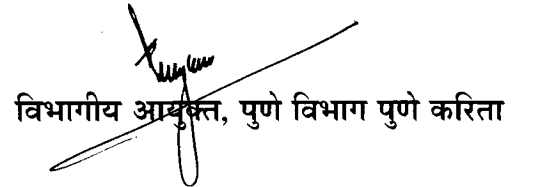 विभागीय आयुक्त, पुणे विभाग पुणे करिता